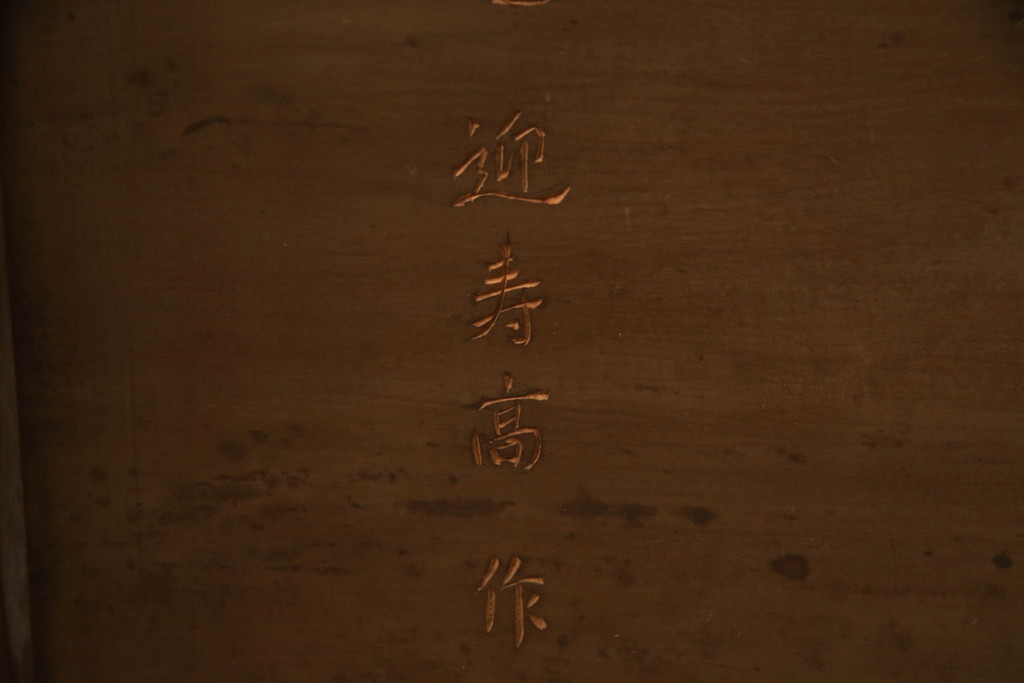 迎寿高作